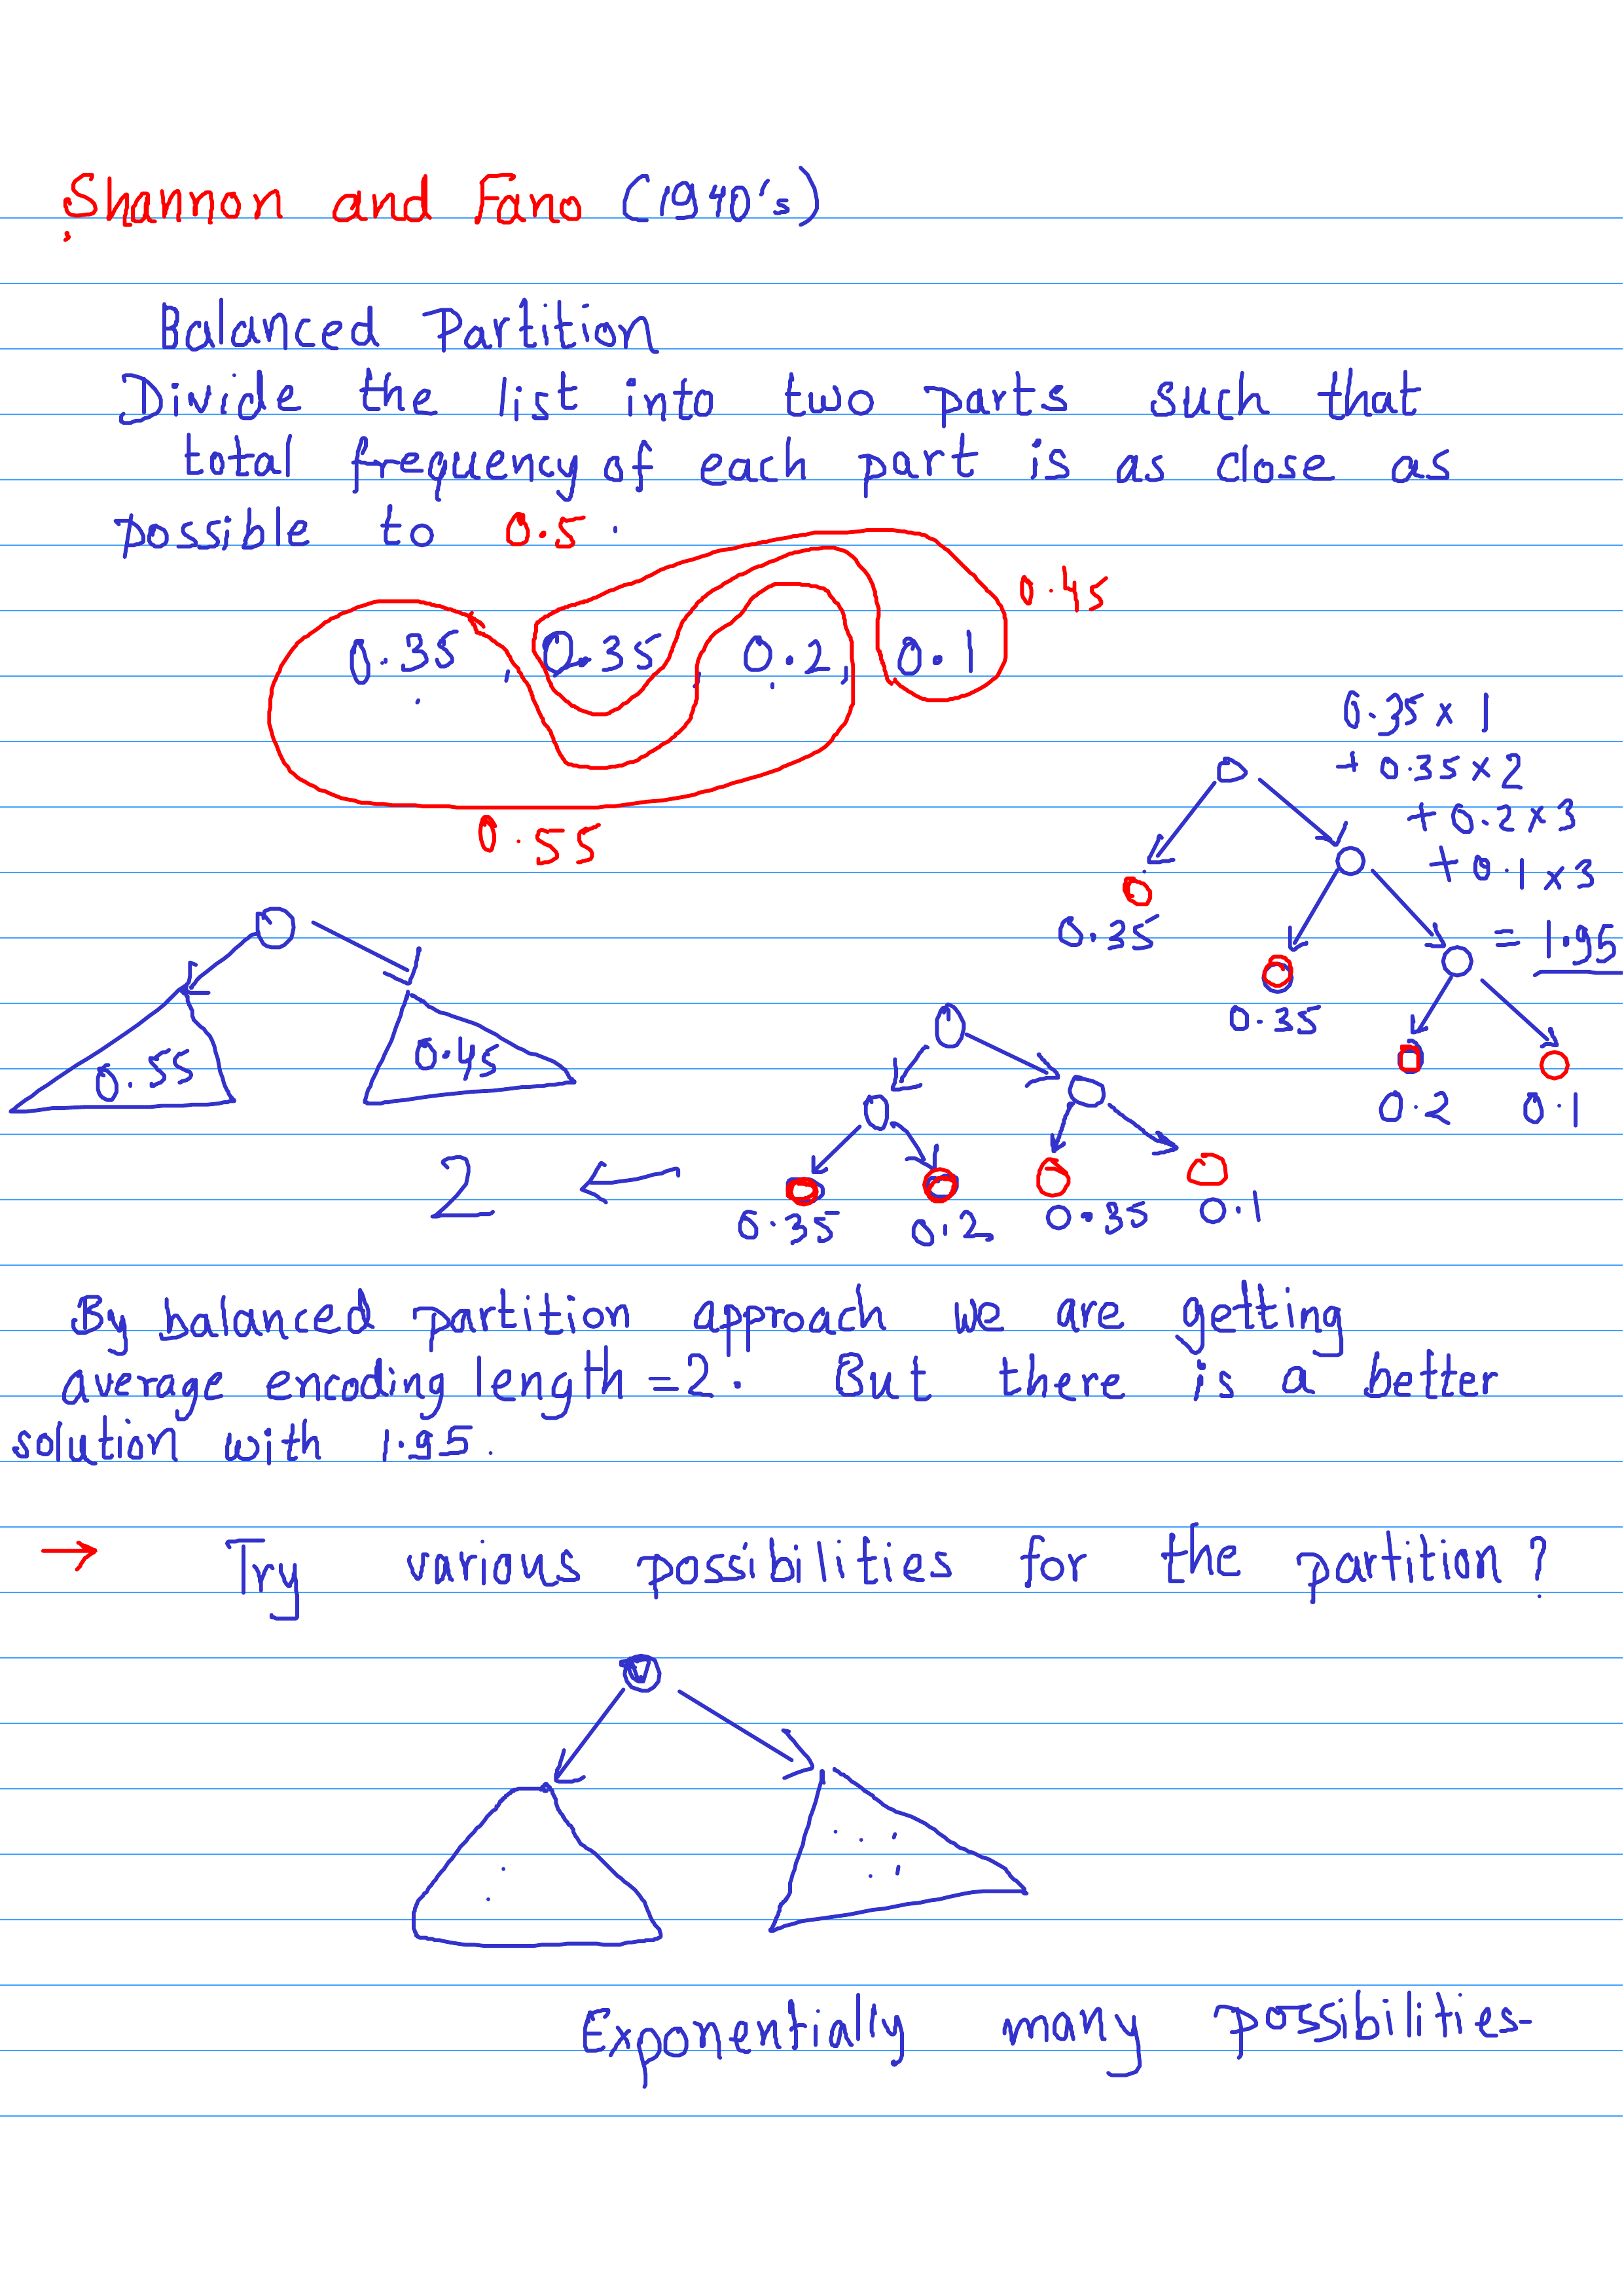 Shannon and Fano (1940's)
Balanced Partition
Divide the list into two parts such that
total frequency of each part is as close as
possible to 0.5.
0.45
0.35, 0.35, 0.2, 0.1
0.55
0.35 × 1
+ 0.35 × 2
+ 0.2 × 3
+ 0.1 × 3
= 1.95
0.35
0.35
0.2 0.1
0.55 0.45
2 ←
0.35 0.2 0.35 0.1
By balanced partition approach we are getting
average encoding length = 2. But there is a better
solution with 1.95.
→ Try various possibilities for the partition?
Exponentially many possibilities-